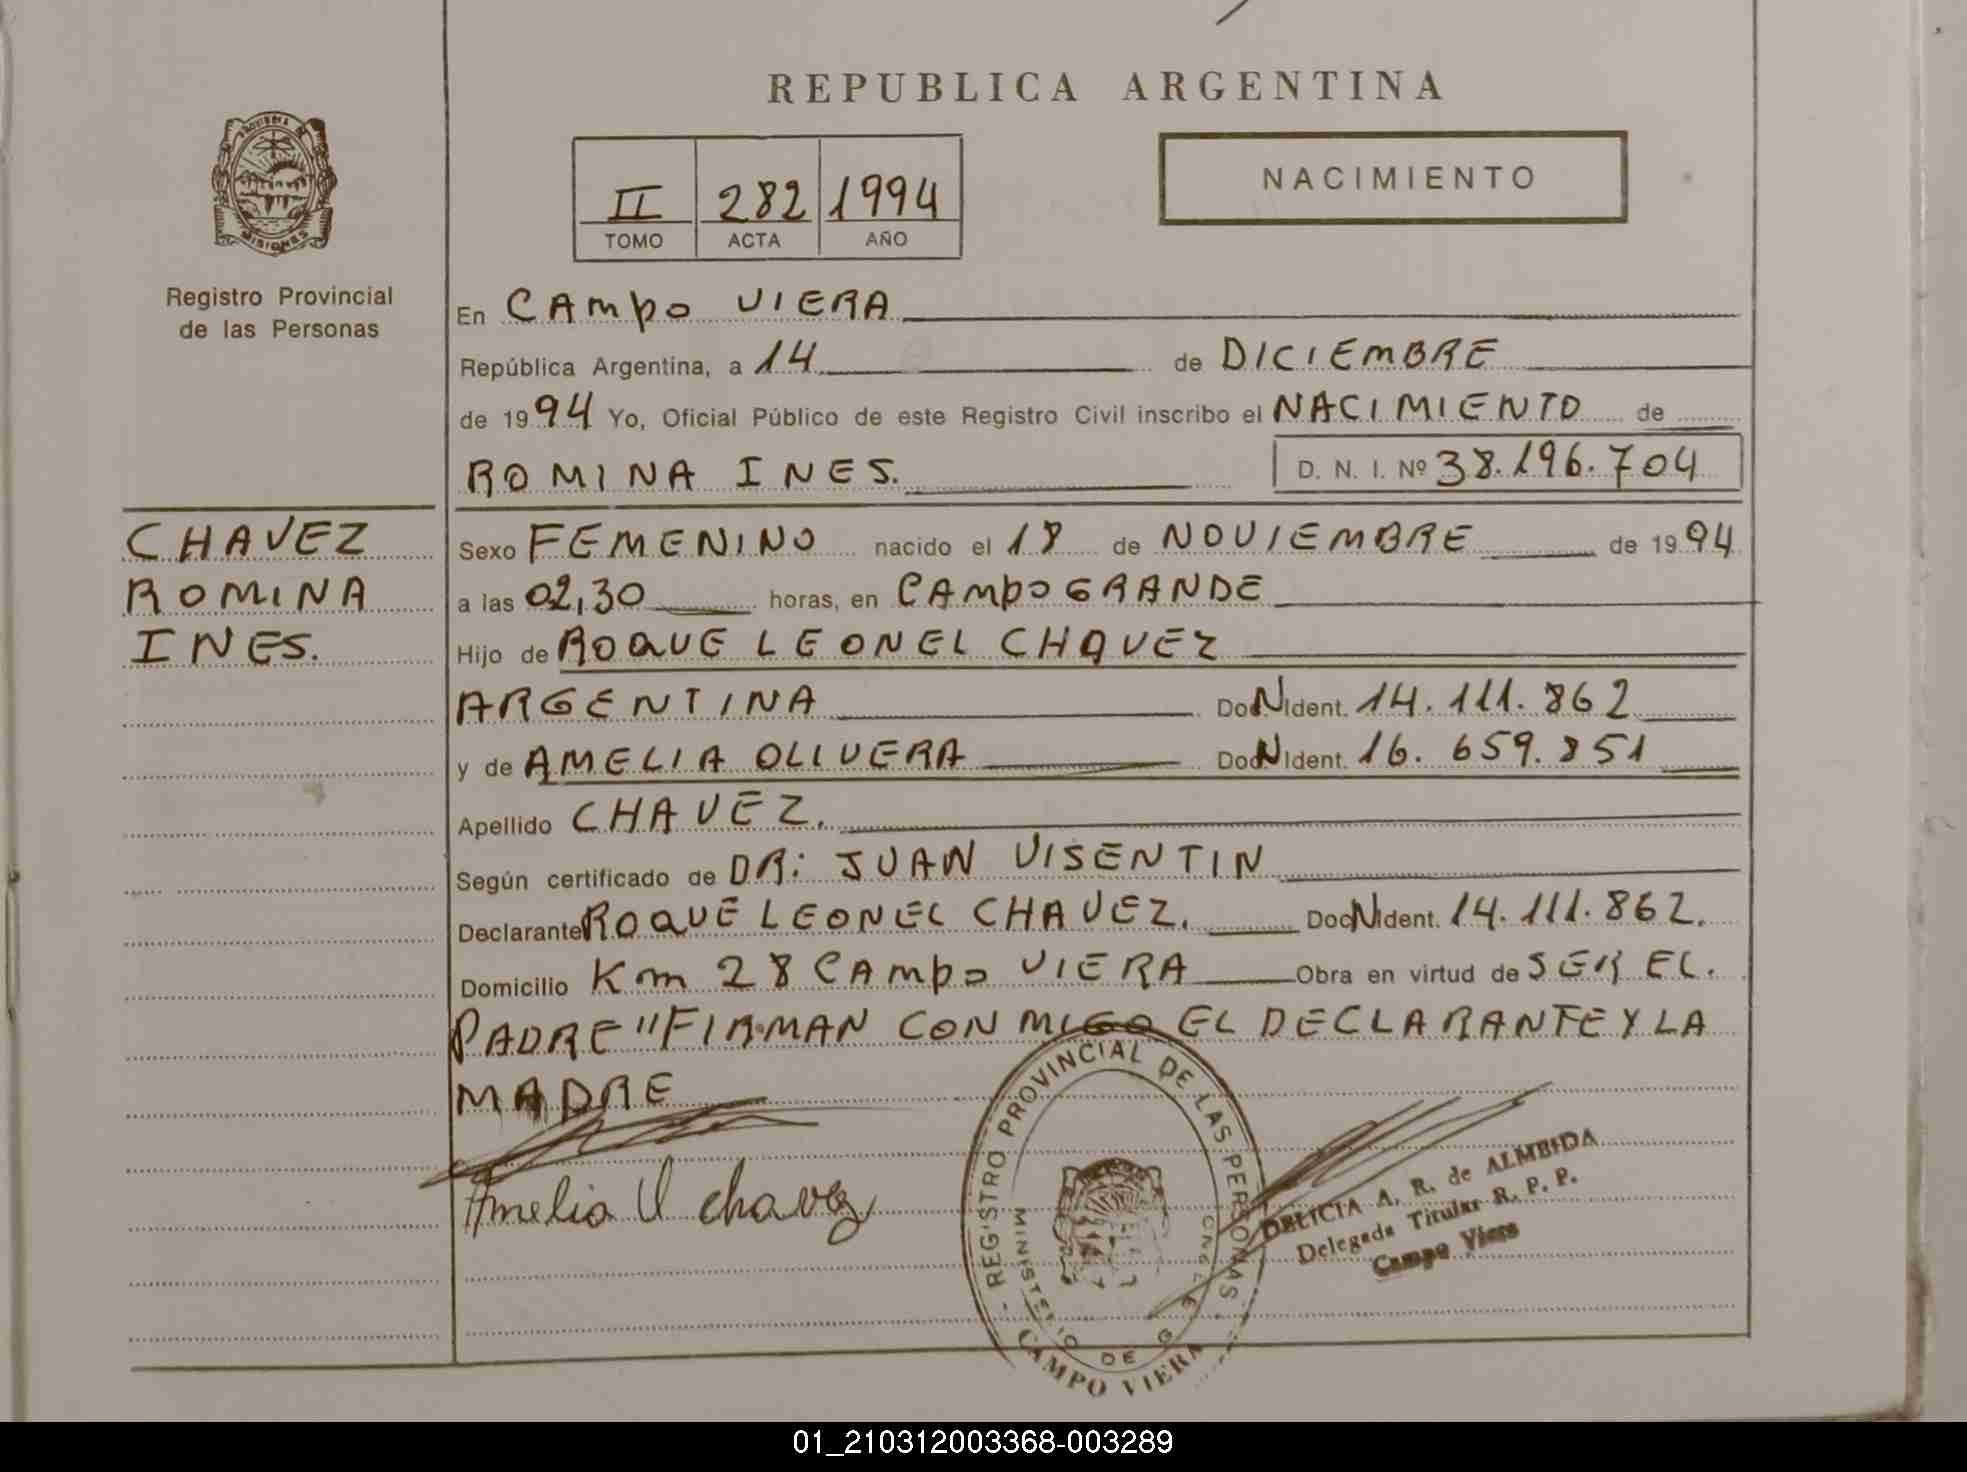 REPUBLICA ARGENTINA
NACIMIENTO
II 282 1994
TOMO ACTA AÑO
PROVINCIA DE
MISIONES
Registro Provincial
de las Personas
En CAMPO VIERA
República Argentina, a 14 de DICIEMBRE
de 1994 Yo, Oficial Público de este Registro Civil inscribo el NACIMIENTO de
ROMINA INES. D. N. I. Nº 38.196.704
CHAVEZ
ROMINA
INES.
Sexo FEMENINO nacido el 18 de NOVIEMBRE de 1994
a las 02,30 horas, en CAMPO GRANDE
Hijo de ROQUE LEONEL CHAVEZ
ARGENTINA DocN Ident. 14.111.862
y de AMELIA OLIVERA DocN Ident. 16.659.851
Apellido CHAVEZ.
Según certificado de DR: JUAN VISENTIN
Declarante ROQUE LEONEL CHAVEZ. DocN Ident. 14.111.862.
Domicilio Km 28 CAMPO VIERA Obra en virtud de SER EL.
PADRE "FIRMAN CON MIGO EL DECLARANTE Y LA
MADRE
Amelia O chavez
REGISTRO PROVINCIAL DE LAS PERSONAS
MINISTERIO DE G
CAMPO VIERA
DELICIA A. R. de ALMEIDA
Delegada Titular R. P. P.
Campo Viera
01_210312003368-003289